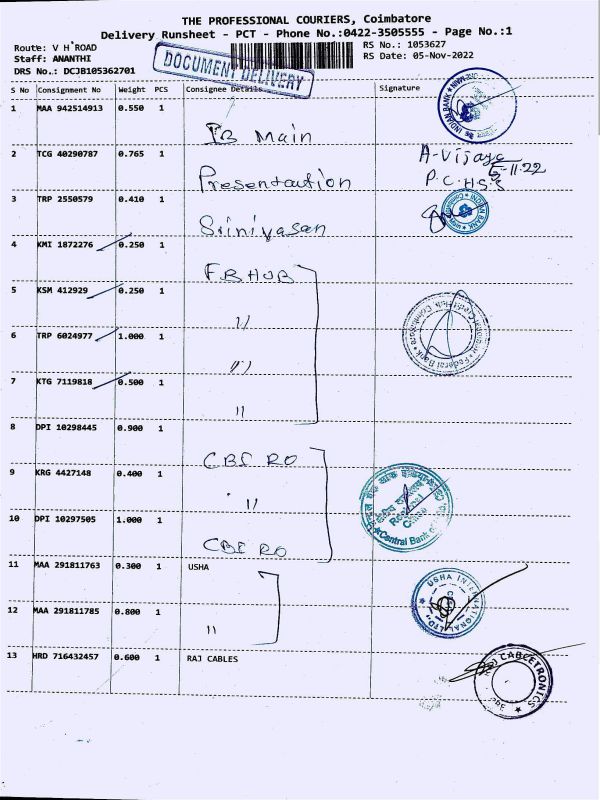 THE PROFESSIONAL COURIERS, Coimbatore
Delivery Runsheet - PCT - Phone No.:0422-3505555 - Page No.:1
Route: V H ROAD
RS No.: 1053627
Staff: ANANTHI
RS Date: 05-Nov-2022
DRS No.: DCJB105362701
DOCUMENT DELIVERY
S No Consignment No Weight PCS Consignee Details Signature
1 MAA 942514913 0.550 1 IB Main
INDIAN BANK
2 TCG 40290787 0.765 1 Presentaution
A-Vijaya
5-11-22
P.C.H.S.S
3 TRP 2550579 0.410 1 Srinivasan
4 KMI 1872276 0.250 1 FB HUB
5 KSM 412929 0.250 1 "
6 TRP 6024977 1.000 1 "
Federal Bank
7 KTG 7119818 0.500 1 "
8 DPI 10298445 0.900 1 CBI RO
9 KRG 4427148 0.400 1 "
Regional Office
Central Bank of
10 DPI 10297505 1.000 1 CBI RO
11 MAA 291811763 0.300 1 USHA
USHA INTERNATIONAL LTD
12 MAA 291811785 0.800 1 "
13 HRD 716432457 0.600 1 RAJ CABLES
CABLETRONICS